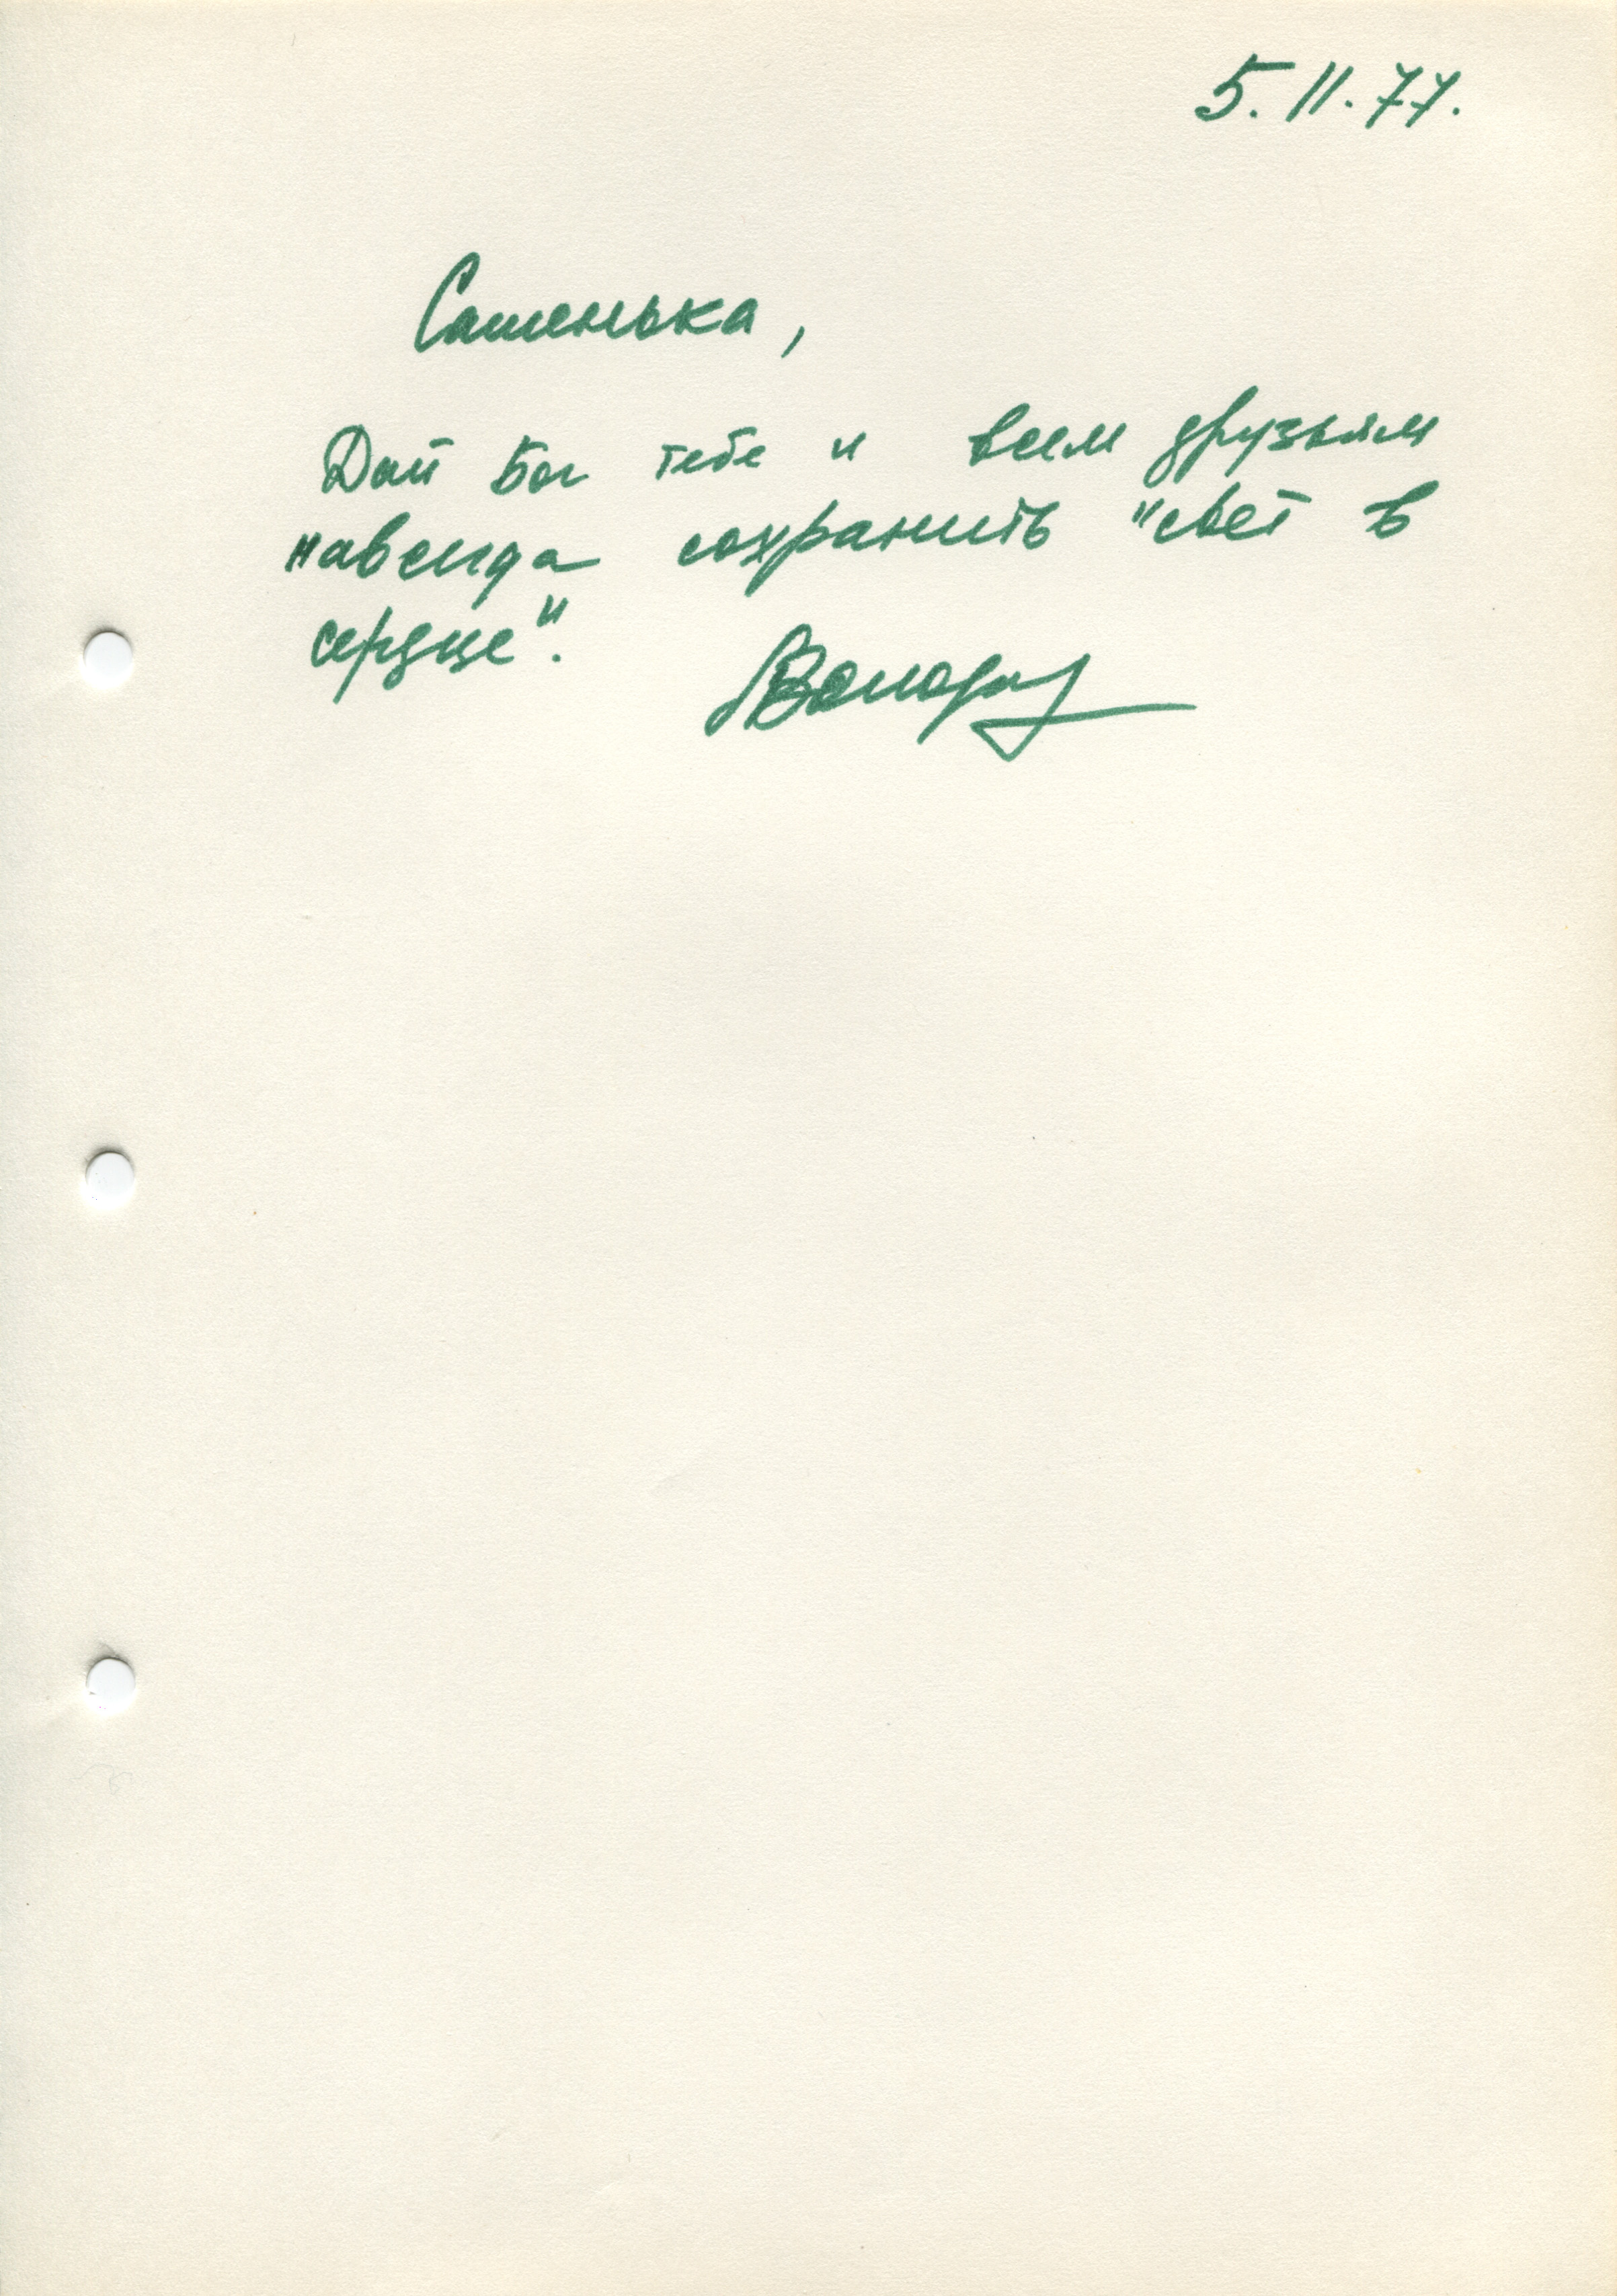 5.11.77.
Сашенька,
Дай Бог тебе и всем друзьям
навсегда сохранить "свет в
сердце".
Володя